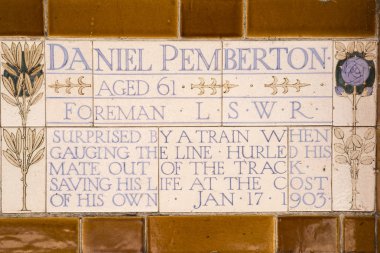 DANIEL PEMBERTON
AGED 61
FOREMAN L·S·W·R·
SURPRISED BY A TRAIN WHEN
GAUGING THE LINE · HURLED HIS
MATE OUT OF THE TRACK ·
SAVING HIS LIFE AT THE COST
OF HIS OWN · JAN · 17 1903 ·